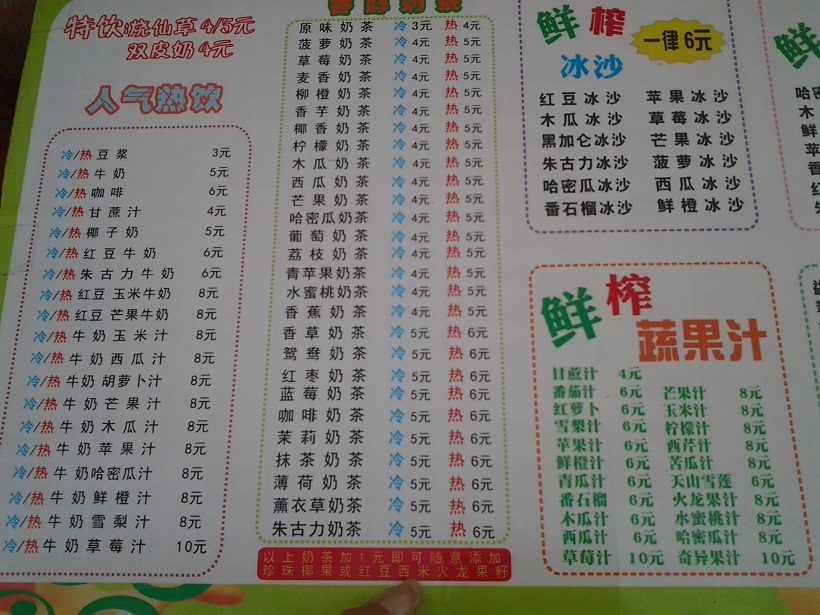 特饮:烧仙草4/5元
双皮奶4元
人气热饮
冷/热豆浆 3元
冷/热牛奶 5元
冷/热咖啡 6元
冷/热甘蔗汁 4元
冷/热椰子奶 5元
冷/热红豆牛奶 6元
冷/热朱古力牛奶 6元
冷/热红豆玉米牛奶 8元
冷/热红豆芒果牛奶 8元
冷/热牛奶玉米汁 8元
冷/热牛奶西瓜汁 8元
冷/热牛奶胡萝卜汁 8元
冷/热牛奶芒果汁 8元
冷/热牛奶木瓜汁 8元
冷/热牛奶苹果汁 8元
冷/热牛奶哈密瓜汁 8元
冷/热牛奶鲜橙汁 8元
冷/热牛奶雪梨汁 8元
冷/热牛奶草莓汁 10元
香醇奶茶
原味奶茶 冷3元 热4元
菠萝奶茶 冷4元 热5元
草莓奶茶 冷4元 热5元
麦香奶茶 冷4元 热5元
柳橙奶茶 冷4元 热5元
香芋奶茶 冷4元 热5元
椰香奶茶 冷4元 热5元
柠檬奶茶 冷4元 热5元
木瓜奶茶 冷4元 热5元
西瓜奶茶 冷4元 热5元
芒果奶茶 冷4元 热5元
哈密瓜奶茶 冷4元 热5元
葡萄奶茶 冷4元 热5元
荔枝奶茶 冷4元 热5元
青苹果奶茶 冷4元 热5元
水蜜桃奶茶 冷4元 热5元
香蕉奶茶 冷4元 热5元
香草奶茶 冷5元 热6元
鸳鸯奶茶 冷5元 热6元
红枣奶茶 冷5元 热6元
蓝莓奶茶 冷5元 热6元
咖啡奶茶 冷5元 热6元
茉莉奶茶 冷5元 热6元
抹茶奶茶 冷5元 热6元
薄荷奶茶 冷5元 热6元
薰衣草奶茶 冷5元 热6元
朱古力奶茶 冷5元 热6元
以上奶茶加1元即可随意添加
珍珠椰果或红豆西米火龙果籽
鲜榨
一律6元
冰沙
红豆冰沙 苹果冰沙
木瓜冰沙 草莓冰沙
黑加仑冰沙 芒果冰沙
朱古力冰沙 菠萝冰沙
哈密瓜冰沙 西瓜冰沙
番石榴冰沙 鲜橙冰沙
鲜榨
蔬果汁
甘蔗汁 4元
番茄汁 6元 芒果汁 8元
红萝卜 6元 玉米汁 8元
雪梨汁 6元 柠檬汁 8元
苹果汁 6元 西芹汁 8元
鲜橙汁 6元 苦瓜汁 8元
青瓜汁 6元 天山雪莲 6元
番石榴 6元 火龙果汁 8元
木瓜汁 6元 水蜜桃汁 8元
西瓜汁 6元 哈密瓜汁 8元
草莓汁 10元 奇异果汁 10元
鲜